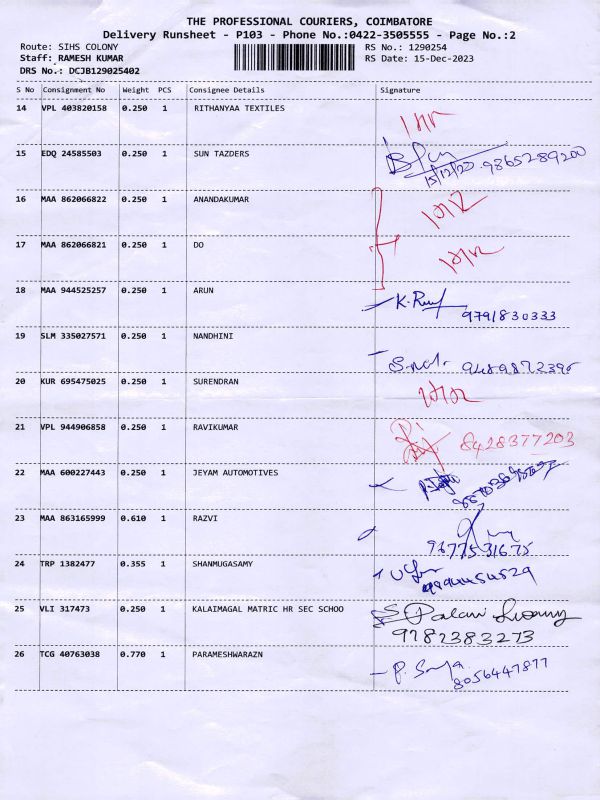 THE PROFESSIONAL COURIERS, COIMBATORE
Delivery Runsheet - P103 - Phone No.:0422-3505555 - Page No.:2
Route: SIHS COLONY RS No.: 1290254
Staff: RAMESH KUMAR RS Date: 15-Dec-2023
DRS No.: DCJB129025402
S No Consignment No Weight PCS Consignee Details Signature
14 VPL 403820158 0.250 1 RITHANYAA TEXTILES
15 EDQ 24585503 0.250 1 SUN TAZDERS
15/12/23 9865289200
16 MAA 862066822 0.250 1 ANANDAKUMAR
17 MAA 862066821 0.250 1 DO
18 MAA 944525257 0.250 1 ARUN
9791830333
19 SLM 335027571 0.250 1 NANDHINI
9489872395
20 KUR 695475025 0.250 1 SURENDRAN
21 VPL 944906858 0.250 1 RAVIKUMAR
8428377203
22 MAA 600227443 0.250 1 JEYAM AUTOMOTIVES
23 MAA 863165999 0.610 1 RAZVI
9677531675
24 TRP 1382477 0.355 1 SHANMUGASAMY
25 VLI 317473 0.250 1 KALAIMAGAL MATRIC HR SEC SCHOO
9782383273
26 TCG 40763038 0.770 1 PARAMESHWARAZN
8056447877